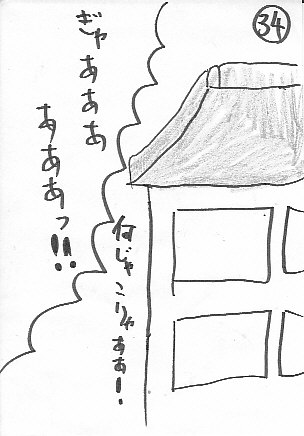 34
ぎゃあああ
あああっ!!
何じゃこりゃああ!